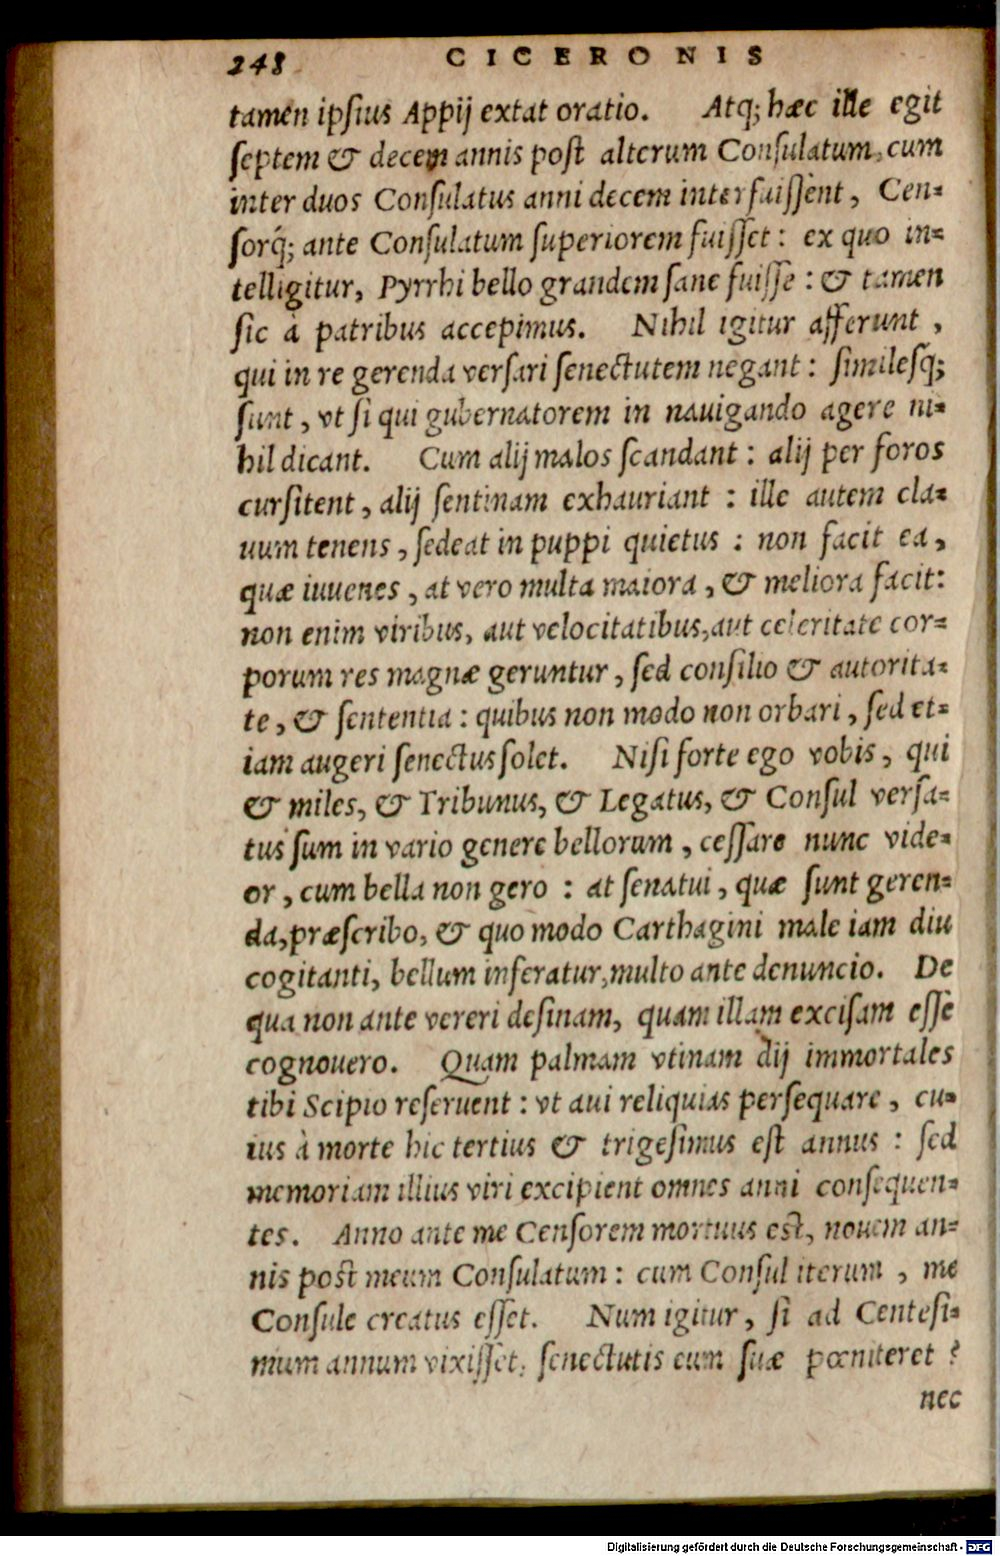 248 CICERONIS
tamen ipſius Appij extat oratio. Atq; hæc ille egit
ſeptem & decem annis poſt alterum Conſulatum, cum
inter duos Conſulatus anni decem interfuiſſent, Cen-
ſorq́; ante Conſulatum ſuperiorem fuiſſet: ex quo in-
telligitur, Pyrrhi bello grandem ſane fuiſſe: & tamen
ſic à patribus accepimus. Nihil igitur afferunt,
qui in re gerenda verſari ſenectutem negant: ſimileſq́;
ſunt, vt ſi qui gubernatorem in nauigando agere ni-
hil dicant. Cum alij malos ſcandant: alij per foros
curſitent, alij ſentinam exhauriant: ille autem cla-
uum tenens, ſedeat in puppi quietus: non facit ea,
quæ iuuenes, at vero multa maiora, & meliora facit:
non enim viribus, aut velocitatibus, aut celeritate cor-
porum res magnæ geruntur, ſed conſilio & autorita-
te, & ſententia: quibus non modo non orbari, ſed et-
iam augeri ſenectus ſolet. Niſi forte ego vobis, qui
& miles, & Tribunus, & Legatus, & Conſul verſa-
tus ſum in vario genere bellorum, ceſſare nunc vide-
or, cum bella non gero: at ſenatui, quæ ſunt geren-
da, præſcribo, & quo modo Carthagini male iam diu
cogitanti, bellum inferatur, multo ante denuncio. De
qua non ante vereri deſinam, quam illam exciſam eſſe
cognouero. Quam palmam vtinam dij immortales
tibi Scipio reſeruent: vt aui reliquias perſequare, cu-
ius à morte hic tertius & trigeſimus eſt annus: ſed
memoriam illius viri excipient omnes anni conſequen-
tes. Anno ante me Cenſorem mortuus eſt, nouem an-
nis poſt meum Conſulatum: cum Conſul iterum, me
Conſule creatus eſſet. Num igitur, ſi ad Centeſi-
mum annum vixiſſet, ſenectutis eum ſuæ pœniteret?
nec
Digitalisierung gefördert durch die Deutsche Forschungsgemeinschaft - DFG